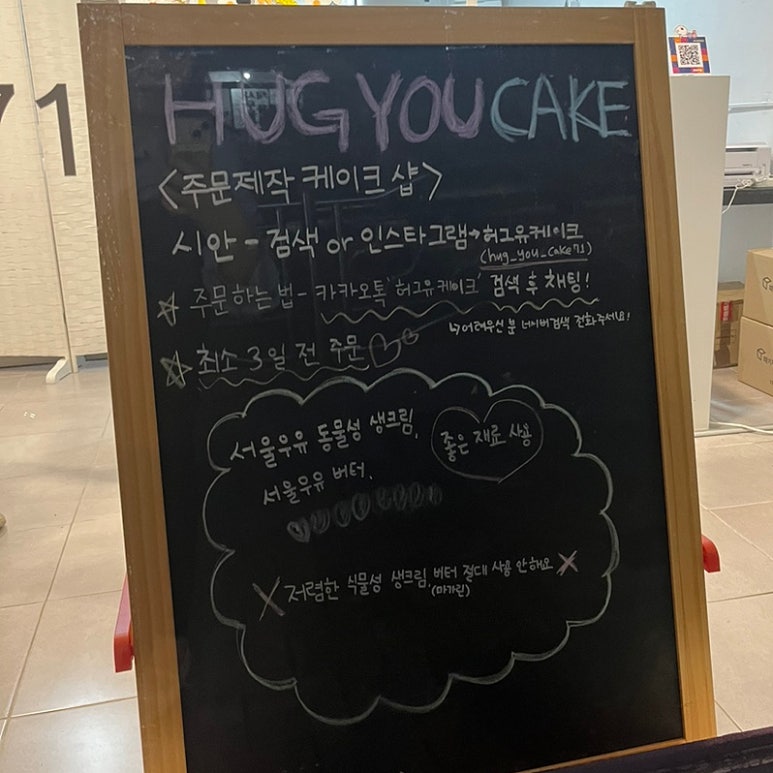 71
HUG YOU CAKE
<주문제작 케이크 샵>
시안 - 검색 or 인스타그램→허그유케이크
(hug_you_cake71)
☆ 주문하는 법 - 카카오톡 '허그유케이크' 검색 후 채팅!
↳어려우신 분 네이버검색 전화주세요!
☆ 최소 3일 전 주문♡
서울우유 동물성 생크림,
서울우유 버터,
좋은 재료 사용
X 저렴한 식물성 생크림, 버터 절대 사용 안해요 X
(마가린)